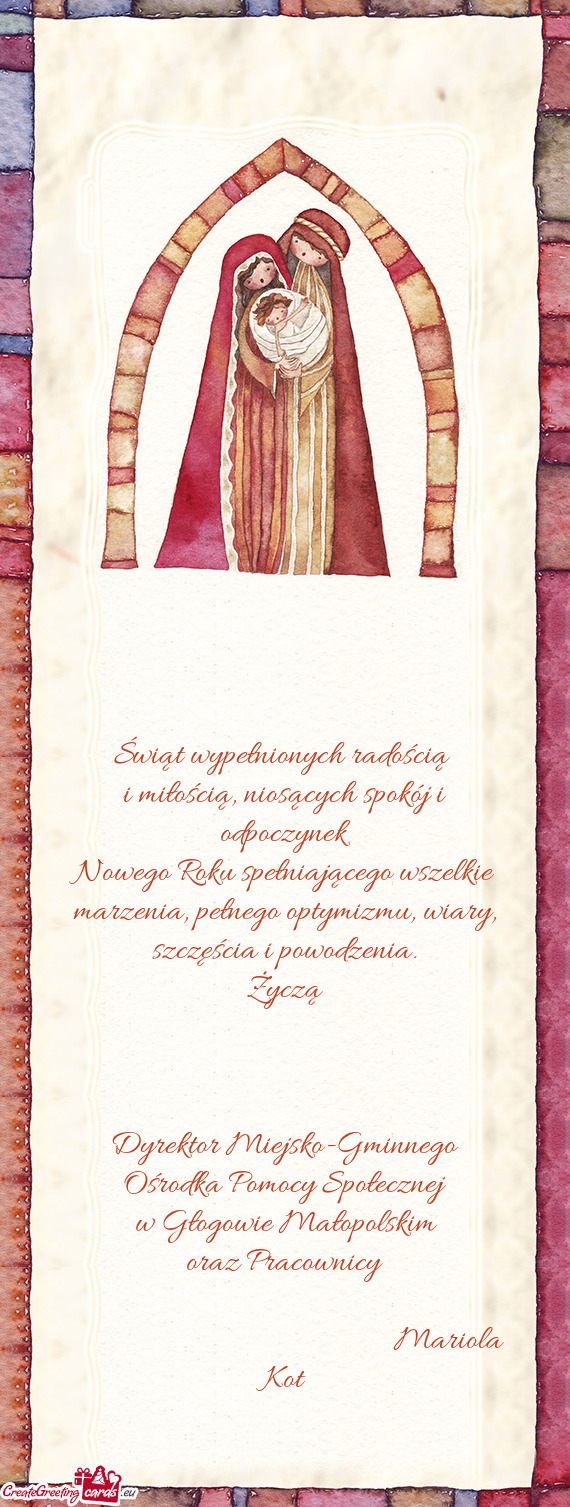 Świąt wypełnionych radością
i miłością, niosących spokój i
odpoczynek
Nowego Roku spełniającego wszelkie
marzenia, pełnego optymizmu, wiary,
szczęścia i powodzenia.
Życzą
Dyrektor Miejsko-Gminnego
Ośrodka Pomocy Społecznej
w Głogowie Małopolskim
oraz Pracownicy
Mariola
Kot
CreateGreeting cards .eu